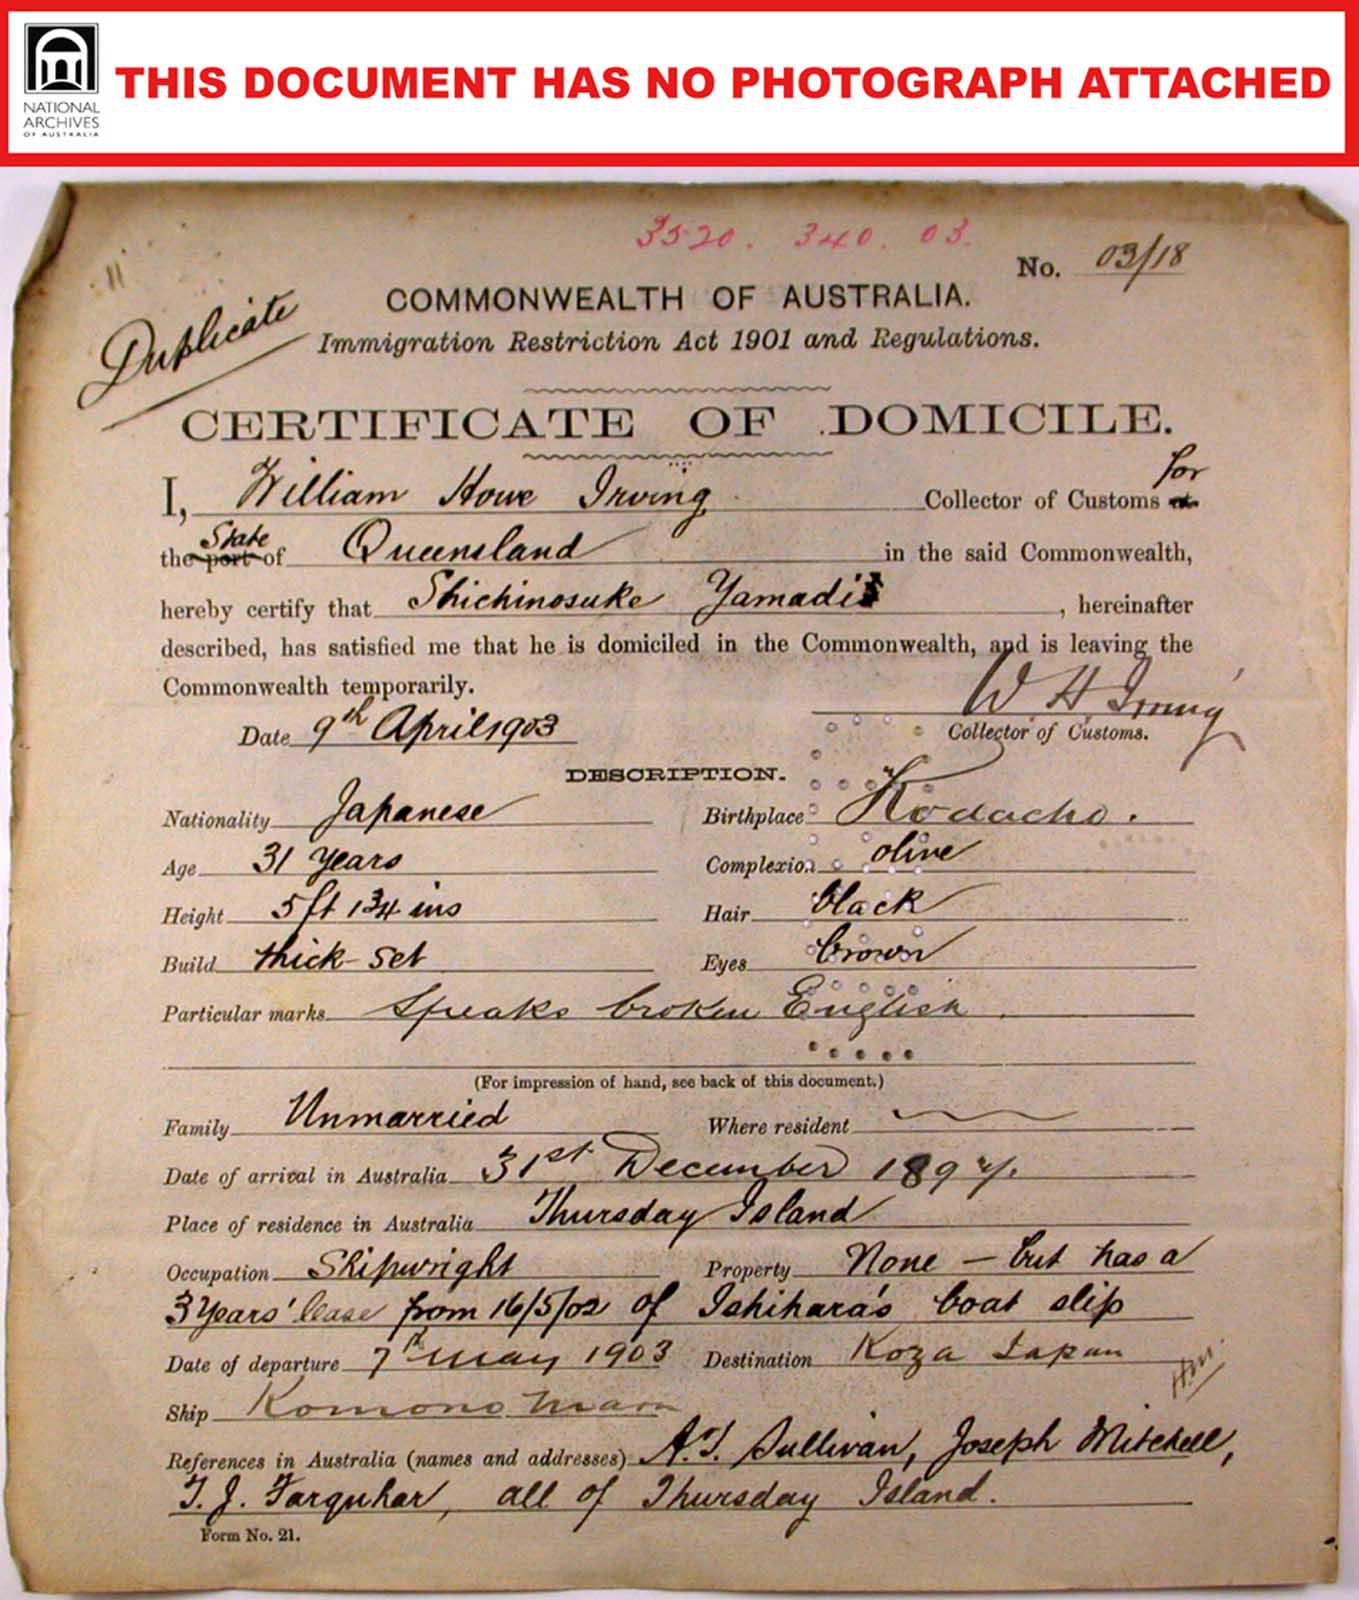 NATIONAL
ARCHIVES
OF AUSTRALIA
THIS DOCUMENT HAS NO PHOTOGRAPH ATTACHED
3520. 340. 03.
No. 03/18
Duplicate
COMMONWEALTH OF AUSTRALIA.
Immigration Restriction Act 1901 and Regulations.
CERTIFICATE OF DOMICILE.
for
I, William Howe Irving Collector of Customs at
State
the port of Queensland in the said Commonwealth,
hereby certify that Shichinosuke , hereinafter
described, has satisfied me that he is domiciled in the Commonwealth, and is leaving the
Commonwealth temporarily.
W H Irving
Date 9th April 1903 Collector of Customs.
DESCRIPTION.
Nationality Japanese Birthplace Kodacho.
Age 31 years Complexion olive
Height 5 ft 1 3/4 ins Hair black
Build thick-set Eyes brown
Particular marks Speaks broken English.
(For impression of hand, see back of this document.)
Family Unmarried Where resident
Date of arrival in Australia 31st December
Place of residence in Australia Thursday Island
Occupation Shipwright Property None - but has a
3 years' lease from 16/5/02 of Ishihara's boat slip
Date of departure 7th May 1903 Destination Koza Japan
Ship Maru
References in Australia (names and addresses) A.T. Sullivan, Joseph Mitchell,
T. J. Farquhar, all of Thursday Island.
Form No. 21.